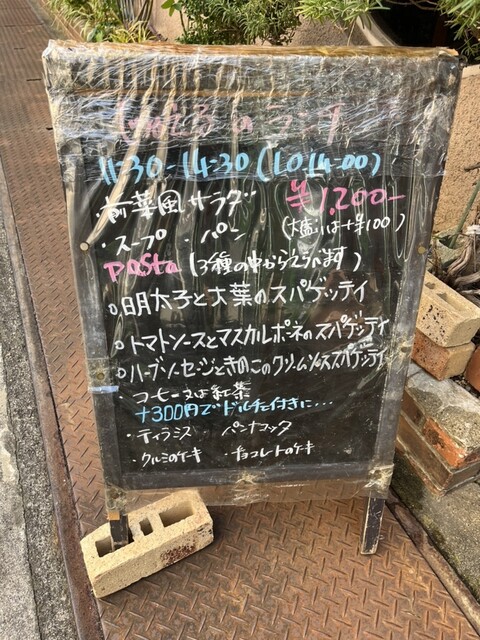 のランチ
11:30-14:30 (LO 14:00)
・前菜風サラダ ¥1,200-
・スープ ・パン (大盛りは+¥100)
Pasta (3種の中からえらべます)
○明太子と大葉のスパゲッティ
○トマトソースとマスカルポーネのスパゲッティ
○ハーブソーセージときのこのクリームソーススパゲッティ
・コーヒー又は紅茶
+300円でドルチェ付きに…
・ティラミス ・パンナコッタ
・クルミのケーキ ・チョコレートのケーキ